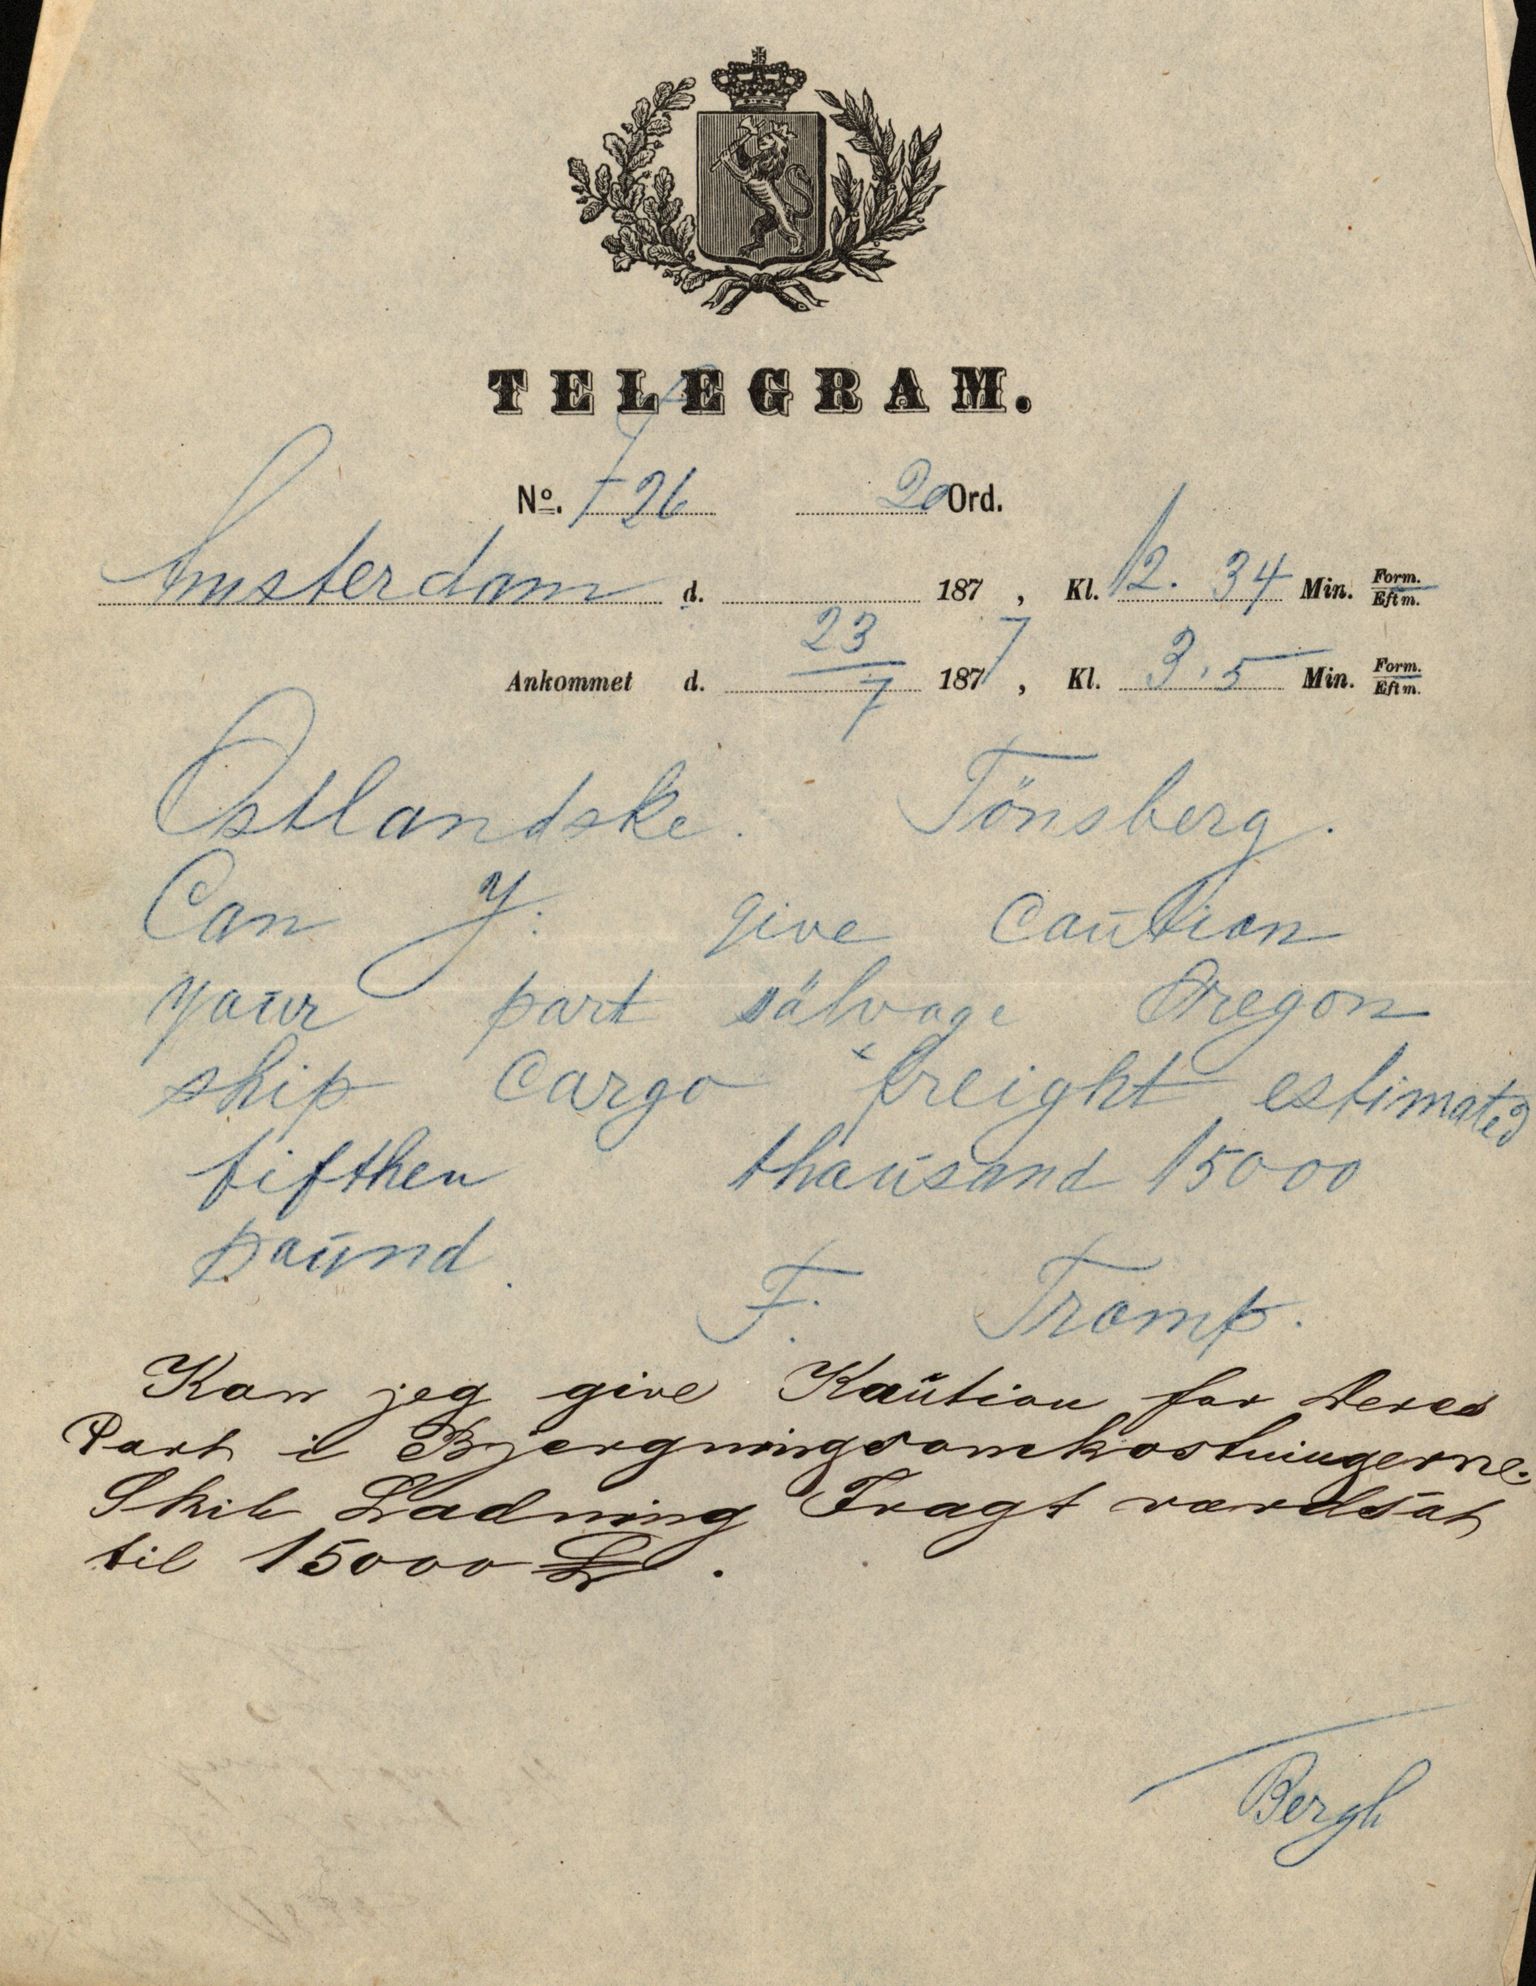 TELEGRAM.
No. 726 20 Ord.
Amsterdam d. 187 , Kl. 12. 34 Min. Form. Eftm.
Ankommet d. 23/7 1877, Kl. 3.5 Min. Form. Eftm.
Ostlandske. Tönsberg.
Can J. give caution
your part sälvage Oregon
ship cargo freight estimated
fifthen thousand 15000
pound.
F. Tromp.
Kan jeg give Kaution for Deres
Part i Bjergningsomkostningerne.
Skib Ladning Fragt værdsat
til 15000 £.
Bergh